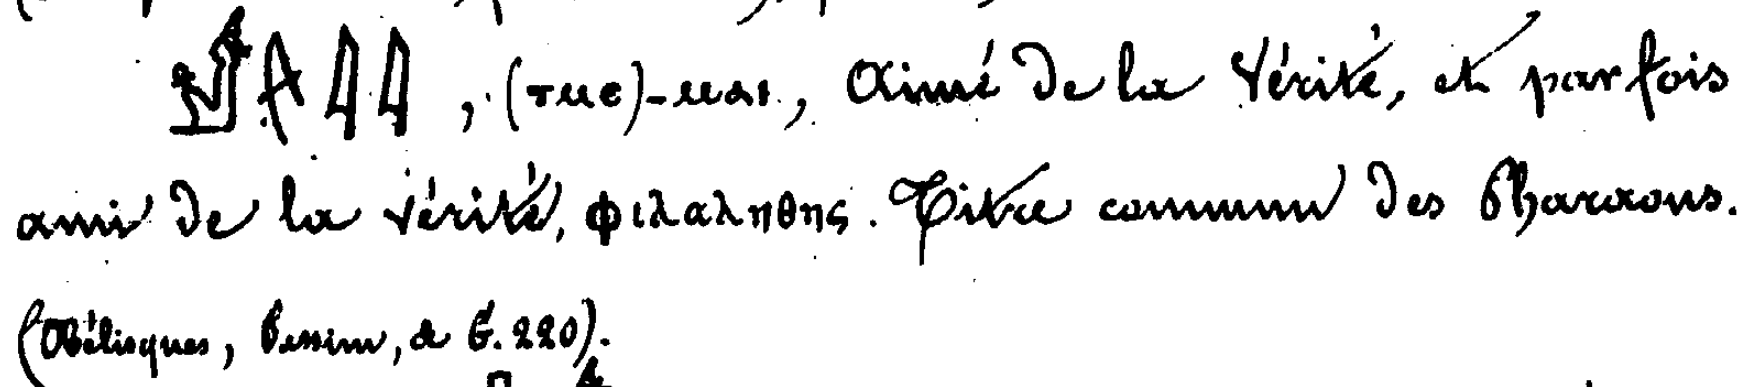 , (ⲧⲙⲉ)-ⲙⲁⲓ, Aimé de la Vérité, et parfois
ami de la vérité, φιλαληθης. Titre commun des Pharaons.
(Obélisques, Passim, & G. 220).